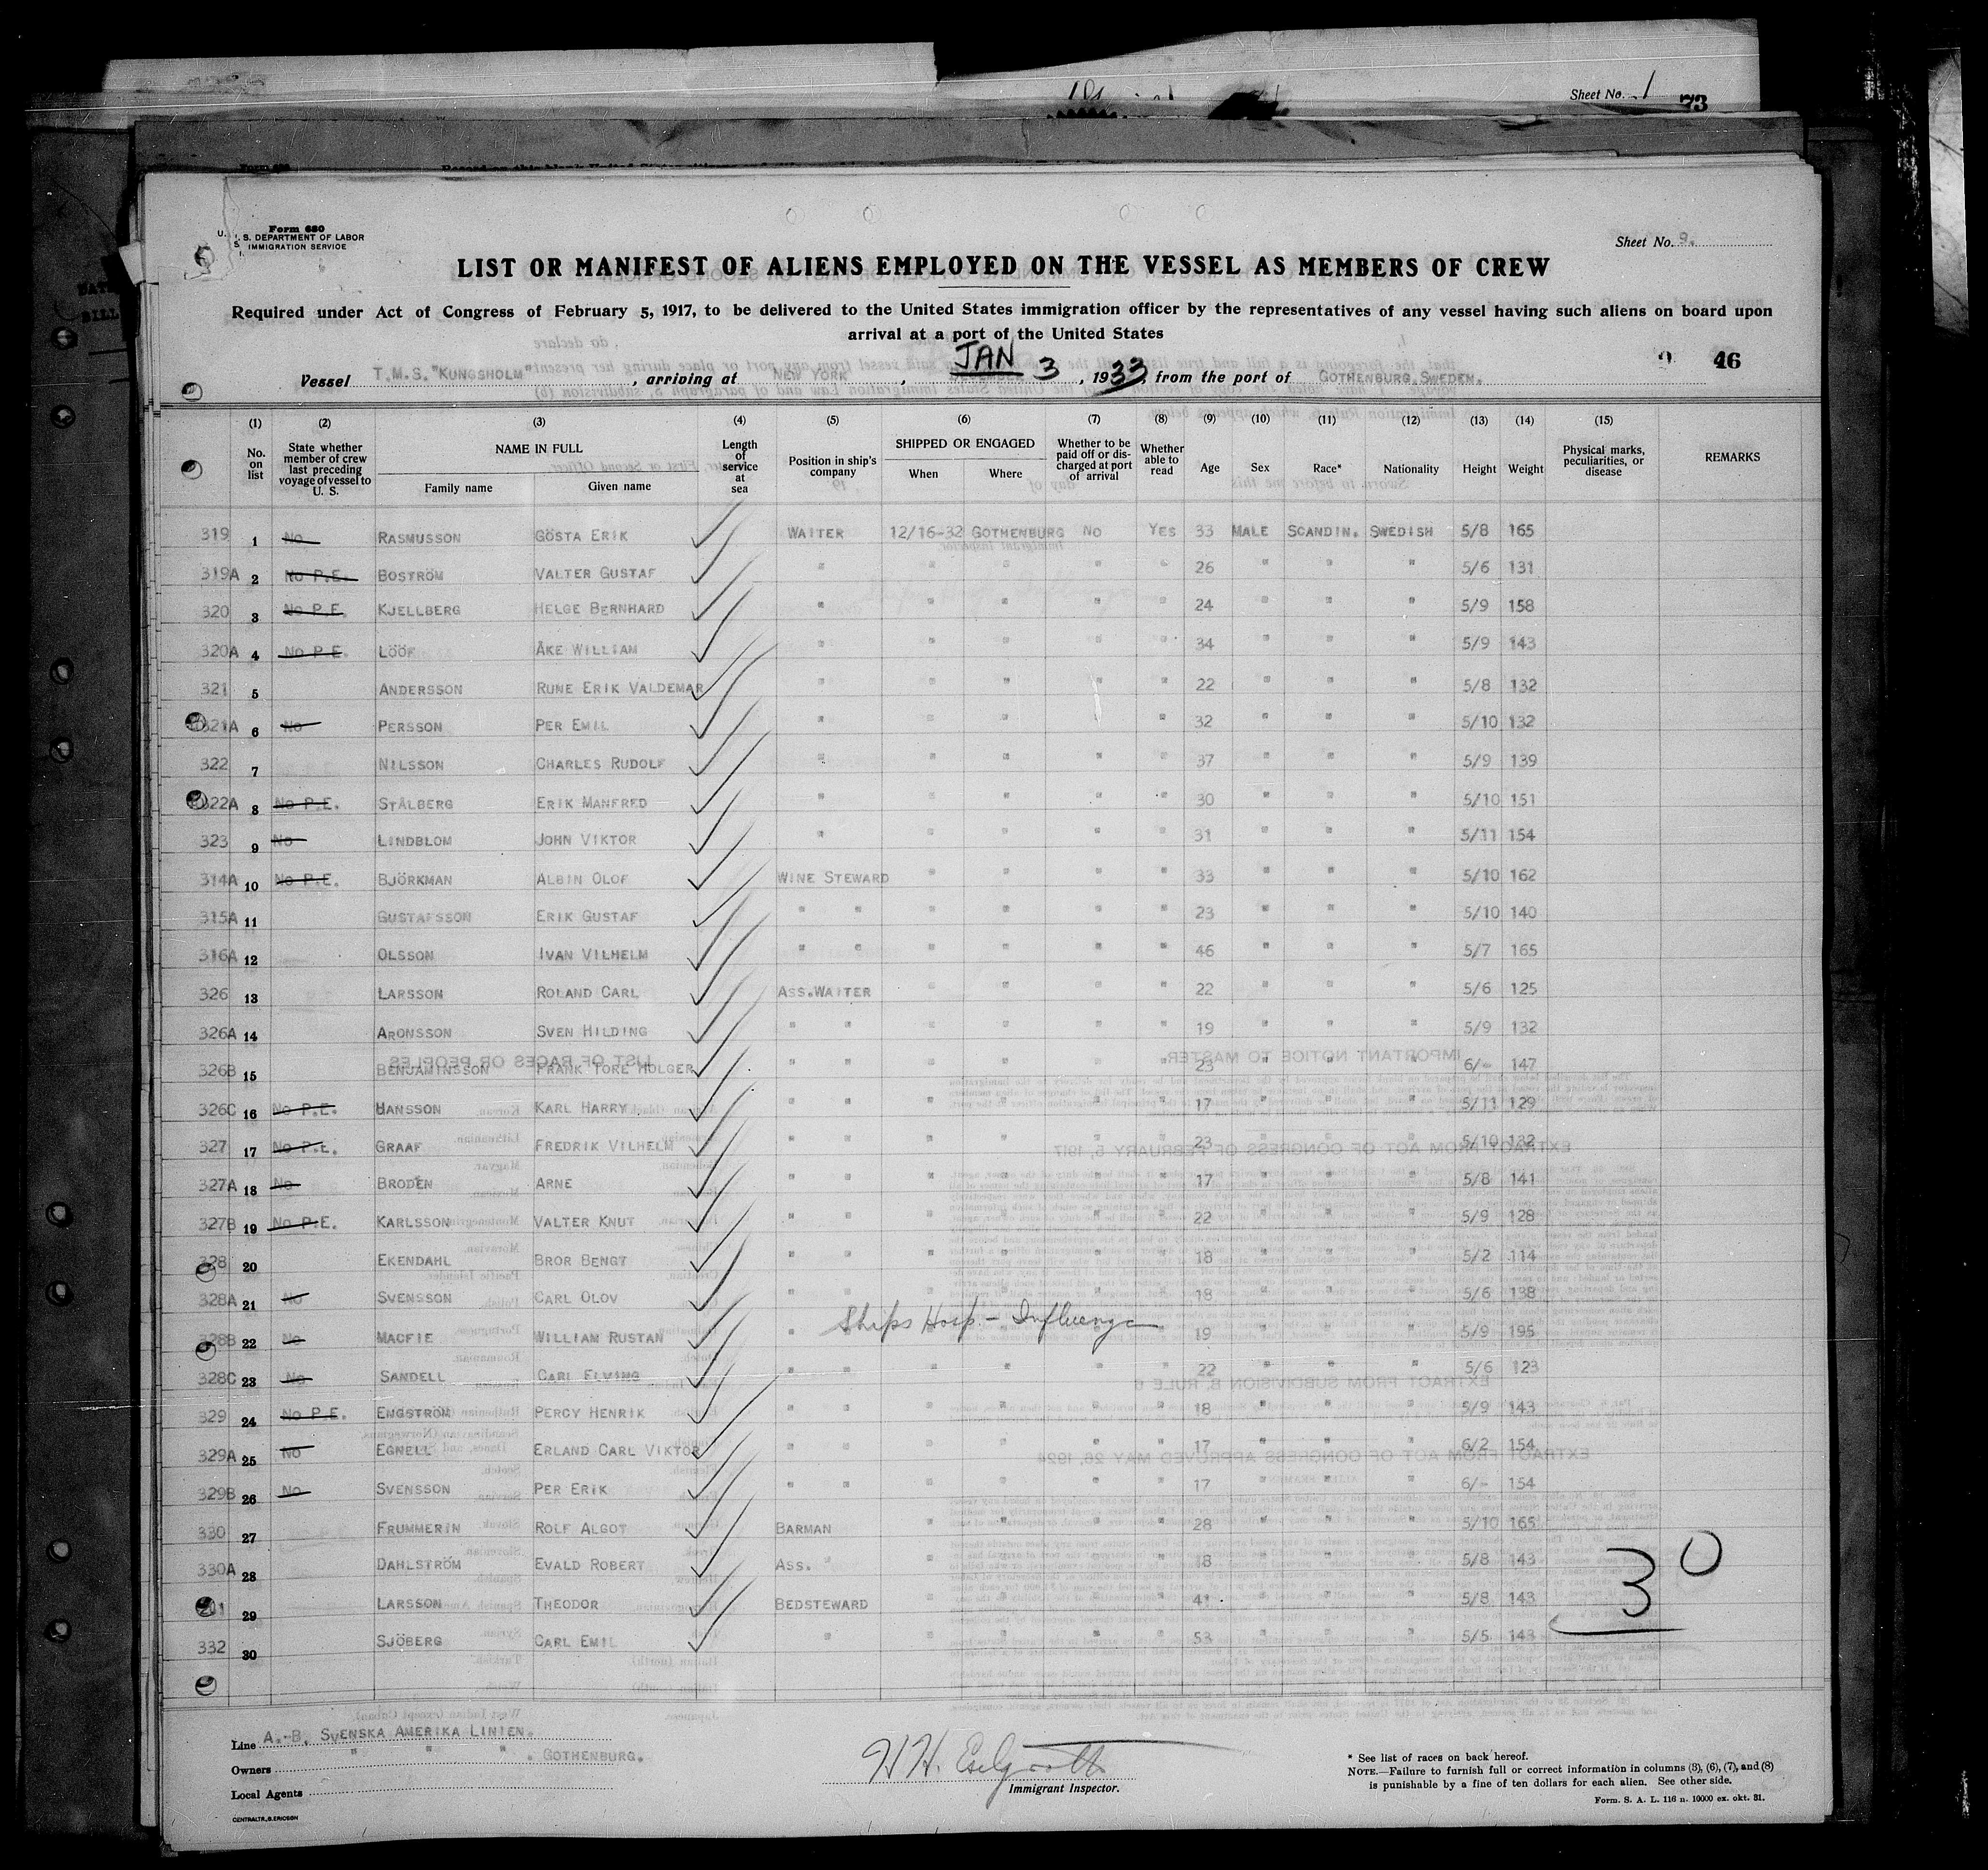 Sheet No. 1
73
Form 680
U. S. DEPARTMENT OF LABOR
IMMIGRATION SERVICE
Sheet No. 9.
LIST OR MANIFEST OF ALIENS EMPLOYED ON THE VESSEL AS MEMBERS OF CREW
Required under Act of Congress of February 5, 1917, to be delivered to the United States immigration officer by the representatives of any vessel having such aliens on board upon
arrival at a port of the United States
9 46
Vessel T.M.S. "KUNGSHOLM", arriving at NEW YORK, JAN 3, 1933, from the port of GOTHENBURG, SWEDEN.
(1) (2) (3) (4) (5) (6) (7) (8) (9) (10) (11) (12) (13) (14) (15)
No. on list State whether member of crew last preceding voyage of vessel to U. S. NAME IN FULL Family name Given name Length of service at sea Position in ship's company SHIPPED OR ENGAGED When Where Whether to be paid off or discharged at port of arrival Whether able to read Age Sex Race* Nationality Height Weight Physical marks, peculiarities, or disease REMARKS
319 1 No RASMUSSON GÖSTA ERIK WAITER 12/16-32 GOTHENBURG NO YES 33 MALE SCANDIN. SWEDISH 5/8 165
319A 2 No P.E. BOSTRÖM VALTER GUSTAF " " " " " 26 " " " 5/6 131
320 3 No P.E. KJELLBERG HELGE BERNHARD " " " " " 24 " " " 5/9 158
320A 4 No P.E. LÖÖF ÅKE WILLIAM " " " " " 34 " " " 5/9 143
321 5 ANDERSSON RUNE ERIK VALDEMAR " " " " " 22 " " " 5/8 132
321A 6 No PERSSON PER EMIL " " " " 32 " " " 5/10 132
322 7 NILSSON CHARLES RUDOLF " " " " " 37 " " " 5/9 139
322A 8 No P.E. STÅLBERG ERIK MANFRED " " " " " 30 " " " 5/10 151
323 9 No LINDBLOM JOHN VIKTOR " " " " " 31 " " " 5/11 154
314A 10 No P.E. BJÖRKMAN ALBIN OLOF WINE STEWARD " " " " 33 " " " 5/10 162
315A 11 GUSTAFSSON ERIK GUSTAF " " " " " " 23 " " " 5/10 140
316A 12 OLSSON IVAN VILHELM " " " " " " 46 " " " 5/7 165
326 13 LARSSON ROLAND CARL ASS.WAITER " " " " 22 " " " 5/6 125
326A 14 ARONSSON SVEN HILDING " " " " " " 19 " " " 5/9 132
326B 15 BENJAMINSSON FRANK TORE HOLGER " " " " " " 23 " " " 6/- 147
326C 16 No P.E. HANSSON KARL HARRY " " " " " " 17 " " " 5/11 129
327 17 No P.E. GRAAF FREDRIK VILHELM " " " " " " 23 " " " 5/10 132
327A 18 No BRODÉN ARNE " " " " " " 17 " " " 5/8 141
327B 19 No P.E. KARLSSON VALTER KNUT " " " " " " 22 " " " 5/9 128
328 20 EKENDAHL BROR BENGT " " " " " " 18 " " " 5/2 114
328A 21 No SVENSSON CARL OLOV " " " " " " 18 " " " 5/6 138
328B 22 No MACFIE WILLIAM RUSTAN " Ships Hosp - Influenza " 19 " " " 5/9 195
328C 23 No SANDELL CARL ELVING " " " " " " 22 " " " 5/6 123
329 24 No P.E. ENGSTRÖM PERCY HENRIK " " " " " " 18 " " " 5/9 143
329A 25 No EGNELL ERLAND CARL VIKTOR " " " " " " 17 " " " 6/2 154
329B 26 No SVENSSON PER ERIK " " " " " " 17 " " " 6/- 154
330 27 FRUMMERIN ROLF ALGOT BARMAN " " " " 28 " " " 5/10 165
330A 28 DAHLSTRÖM EVALD ROBERT ASS. " " " " " 18 " " " 5/8 143
29 LARSSON THEODOR BEDSTEWARD " " " " 41 " " " 5/8 143
332 30 SJÖBERG CARL EMIL " " " " " 53 " " " 5/5 143
30
Line A.-B. SVENSKA AMERIKA LINIEN.
Owners " " " . GOTHENBURG.
Local Agents
Immigrant Inspector.
* See list of races on back hereof.
NOTE.—Failure to furnish full or correct information in columns (3), (6), (7), and (8)
is punishable by a fine of ten dollars for each alien. See other side.
Form. S. A. L. 116 n. 10000 ex. okt. 31.
CENTRALTR., G. ERICSON